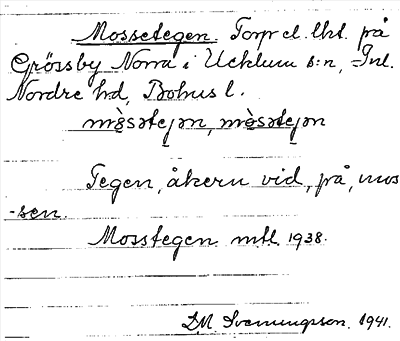 Mossetegen. Torp el. lht. på
Grössby Norra i Ucklum s:n, Inl.
Nordre hd, Bohus l.
Tegen, åkern vid, på, mos
-sen.
Mosstegen mtl 1938.
D.M. Svenungsson. 1941.